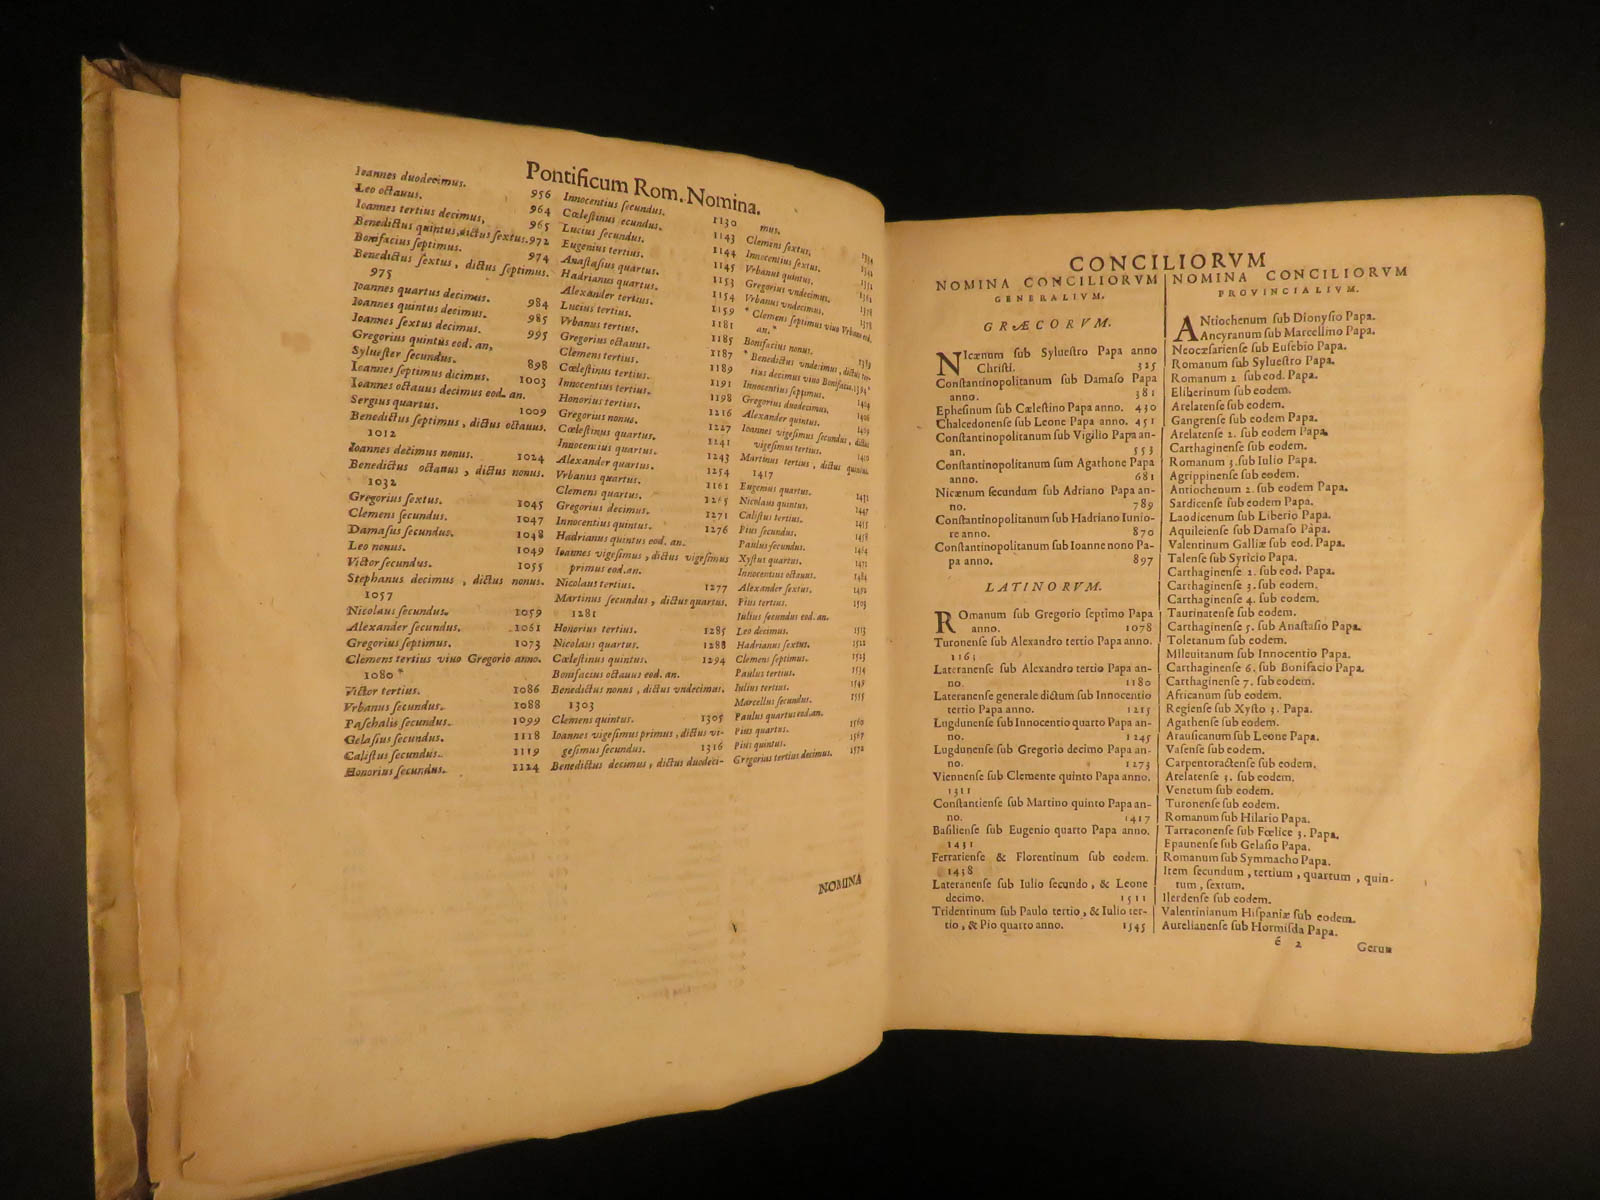 Pontificum Rom. Nomina.
Ioannes duodecimus. 956
Leo octauus. 964
Ioannes tertius decimus, 965
Benedictus quintus, dictus ſextus. 972
Bonifacius ſeptimus. 974
Benedictus ſextus, dictus ſeptimus.
975
Ioannes quartus decimus. 984
Ioannes quintus decimus. 985
Ioannes ſextus decimus. 995
Gregorius quintus eod. an,
Sylueſter ſecundus. 898
Ioannes ſeptimus dicimus. 1003
Ioannes octauus decimus eod. an.
Sergius quartus. 1009
Benedictus ſeptimus, dictus octauus.
1012
Ioannes decimus nonus. 1024
Benedictus octauus, dictus nonus.
1032
Gregorius ſextus. 1045
Clemens ſecundus. 1047
Damaſus ſecundus. 1048
Leo nonus. 1049
Victor ſecundus. 1055
Stephanus decimus, dictus nonus.
1057
Nicolaus ſecundus. 1059
Alexander ſecundus. 1061
Gregorius ſeptimus. 1073
Clemens tertius viuo Gregorio anno.
1080*
Victor tertius. 1086
Vrbanus ſecundus. 1088
Paſchalis ſecundus. 1099
Gelaſius ſecundus. 1118
Caliſtus ſecundus. 1119
Honorius ſecundus. 1124
Innocentius ſecundus. 1130
Cœleſtinus ecundus. 1143
Lucius ſecundus. 1144
Eugenius tertius. 1145
Anaſtaſius quartus. 1153
Hadrianus quartus. 1154
Alexander tertius. 1159
Lucius tertius. 1181
Vrbanus tertius. 1185
Gregorius octauus. 1187
Clemens tertius. 1189
Cœleſtinus tertius. 1191
Innocentius tertius. 1198
Honorius tertius. 1216
Gregorius nonus. 1227
Cœleſtinus quartus. 1241
Innocentius quartus. 1243
Alexander quartus. 1254
Vrbanus quartus. 1161
Clemens quartus. 1265
Gregorius decimus. 1271
Innocentius quintus. 1276
Hadrianus quintus eod. an.
Ioannes vigeſimus, dictus vigeſimus
primus eod. an.
Nicolaus tertius. 1277
Martinus ſecundus, dictus quartus.
1281
Honorius tertius. 1285
Nicolaus quartus. 1288
Cœleſtinus quintus. 1294
Bonifacius octauus eod. an.
Benedictus nonus, dictus vndecimus.
1303
Clemens quintus. 1305
Ioannes vigeſimus primus, dictus vi-
geſimus ſecundus. 1316
Benedictus decimus, dictus duodeci-
mus.
Clemens ſextus,
Innocentius ſextus.
Vrbanus quintus.
Gregorius vndecimus.
Vrbanus vndecimus. 1378
* Clemens ſeptimus viuo Vrbano eod.
an.*
Bonifacius nonus. 1389
* Benedictus vndecimus, dictus ter-
tius decimus viuo Bonifacio. 1394*
Innocentius ſeptimus. 1404
Gregorius duodecimus. 1406
Alexander quintus. 1409
Ioannes vigeſimus ſecundus, dictus
vigeſimus tertius. 1410
Martinus tertius, dictus quintus.
1417
Eugenius quartus. 1431
Nicolaus quintus. 1447
Caliſtus tertius. 1455
Pius ſecundus. 1458
Paulus ſecundus. 1464
Xyſtus quartus. 1471
Innocentius octauus. 1484
Alexander ſextus. 1492
Pius tertius. 1503
Iulius ſecundus eod. an.
Leo decimus. 1513
Hadrianus ſextus. 1522
Clemens ſeptimus. 1523
Paulus tertius. 1534
Iulius tertius. 1549
Marcellus ſecundus. 1555
Paulus quartus eod. an.
Pius quartus. 1560
Pius quintus. 1567
Grigorius tertius decimus. 1572
NOMINA
CONCILIORVM
NOMINA CONCILIORVM
GENERALIVM.
GRÆCORVM.
NIcænum ſub Sylueſtro Papa anno
Chriſti. 325
Conſtantinopolitanum ſub Damaſo Papa
anno. 381
Epheſinum ſub Cæleſtino Papa anno. 430
Chalcedonenſe ſub Leone Papa anno. 451
Conſtantinopolitanum ſub Vigilio Papa an-
an. 553
Conſtantinopolitanum ſum Agathone Papa
anno. 681
Nicænum ſecundum ſub Adriano Papa an-
no. 789
Conſtantinopolitanum ſub Hadriano Iunio-
re anno. 870
Conſtantinopolitanum ſub Ioanne nono Pa-
pa anno. 897
LATINORVM.
ROmanum ſub Gregorio ſeptimo Papa
anno. 1078
Turonenſe ſub Alexandro tertio Papa anno.
1163
Lateranenſe ſub Alexandro tertio Papa an-
no. 1180
Lateranenſe generale dictum ſub Innocentio
tertio Papa anno. 1215
Lugdunenſe ſub Innocentio quarto Papa an-
no. 1245
Lugdunenſe ſub Gregorio decimo Papa an-
no. 1273
Viennenſe ſub Clemente quinto Papa anno.
1311
Conſtantienſe ſub Martino quinto Papa an-
no. 1417
Baſilienſe ſub Eugenio quarto Papa anno.
1431
Ferrarienſe & Florentinum ſub eodem.
1438
Lateranenſe ſub Iulio ſecundo, & Leone
decimo. 1511
Tridentinum ſub Paulo tertio, & Iulio ter-
tio, & Pio quarto anno. 1545
NOMINA CONCILIORVM
PROVINCIALIVM.
ANtiochenum ſub Dionyſio Papa.
Ancyranum ſub Marcellino Papa.
Neocæſarienſe ſub Euſebio Papa.
Romanum ſub Sylueſtro Papa.
Romanum 2. ſub eod. Papa.
Eliberinum ſub eodem.
Arelatenſe ſub eodem.
Gangrenſe ſub eodem Papa.
Arelatenſe 2. ſub eodem Papa.
Carthaginenſe ſub eodem.
Romanum 3. ſub Iulio Papa.
Agrippinenſe ſub eodem.
Antiochenum 2. ſub eodem Papa.
Sardicenſe ſub eodem Papa.
Laodicenum ſub Liberio Papa.
Aquileienſe ſub Damaſo Papa.
Valentinum Galliæ ſub eod. Papa.
Talenſe ſub Syricio Papa.
Carthaginenſe 2. ſub eod. Papa.
Carthaginenſe 3. ſub eodem.
Carthaginenſe 4. ſub eodem.
Taurinatenſe ſub eodem.
Carthaginenſe 5. ſub Anaſtaſio Papa.
Toletanum ſub eodem.
Mileuitanum ſub Innocentio Papa.
Carthaginenſe 6. ſub Bonifacio Papa.
Carthaginenſe 7. ſub eodem.
Africanum ſub eodem.
Regienſe ſub Xyſto 3. Papa.
Agathenſe ſub eodem.
Arauſicanum ſub Leone Papa.
Vaſenſe ſub eodem.
Carpentoractenſe ſub eodem.
Arelatenſe 3. ſub eodem.
Venetum ſub eodem.
Turonenſe ſub eodem.
Romanum ſub Hilario Papa.
Tarraconenſe ſub Fœlice 3. Papa.
Epaunenſe ſub Gelaſio Papa.
Romanum ſub Symmacho Papa.
Item ſecundum, tertium, quartum, quin-
tum, ſextum.
Ilerdenſe ſub eodem.
Valentinianum Hiſpaniæ ſub eodem.
Aurelianenſe ſub Hormiſda Papa.
é 2
Gerun